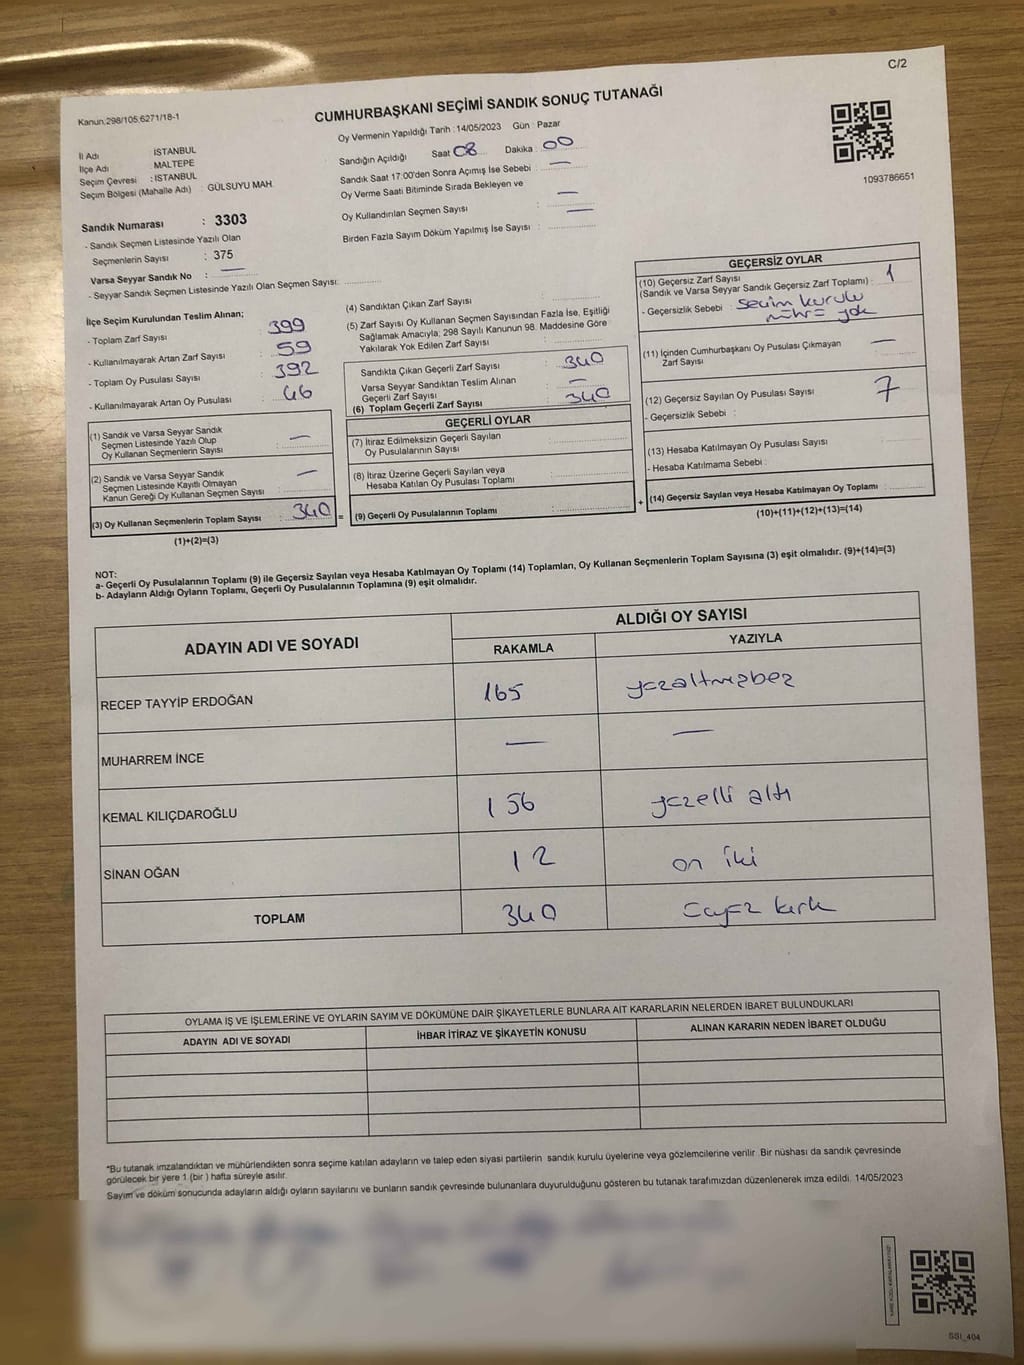 C/2
Kanun,298/105;6271/18-1
CUMHURBAŞKANI SEÇİMİ SANDIK SONUÇ TUTANAĞI
Oy Vermenin Yapıldığı Tarih : 14/05/2023 Gün : Pazar
İl Adı İSTANBUL
İlçe Adı MALTEPE
Seçim Çevresi : İSTANBUL
Seçim Bölgesi (Mahalle Adı) : GÜLSUYU MAH.
Sandığın Açıldığı Saat 08 Dakika : 00
Sandık Saat 17:00'den Sonra Açımış İse Sebebi : —
Oy Verme Saati Bitiminde Sırada Bekleyen ve
Oy Kullandırılan Seçmen Sayısı : —
Birden Fazla Sayım Döküm Yapılmış İse Sayısı : —
1093786651
Sandık Numarası : 3303
- Sandık Seçmen Listesinde Yazılı Olan
Seçmenlerin Sayısı : 375
Varsa Seyyar Sandık No : —
- Seyyar Sandık Seçmen Listesinde Yazılı Olan Seçmen Sayısı:
İlçe Seçim Kurulundan Teslim Alınan;
- Toplam Zarf Sayısı : 399
- Kullanılmayarak Artan Zarf Sayısı : 59
- Toplam Oy Pusulası Sayısı : 392
- Kullanılmayarak Artan Oy Pusulası : 46
(1) Sandık ve Varsa Seyyar Sandık
Seçmen Listesinde Yazılı Olup
Oy Kullanan Seçmenlerin Sayısı : —
(2) Sandık ve Varsa Seyyar Sandık
Seçmen Listesinde Kayıtlı Olmayan
Kanun Gereği Oy Kullanan Seçmen Sayısı : —
(3) Oy Kullanan Seçmenlerin Toplam Sayısı : 340 =
(1)+(2)=(3)
(4) Sandıktan Çıkan Zarf Sayısı :
(5) Zarf Sayısı Oy Kullanan Seçmen Sayısından Fazla İse, Eşitliği
Sağlamak Amacıyla; 298 Sayılı Kanunun 98. Maddesine Göre
Yakılarak Yok Edilen Zarf Sayısı :
Sandıkta Çıkan Geçerli Zarf Sayısı : 340
Varsa Seyyar Sandıktan Teslim Alınan
Geçerli Zarf Sayısı : —
(6) Toplam Geçerli Zarf Sayısı : 340
GEÇERLİ OYLAR
(7) İtiraz Edilmeksizin Geçerli Sayılan
Oy Pusulalarının Sayısı :
(8) İtiraz Üzerine Geçerli Sayılan veya
Hesaba Katılan Oy Pusulası Toplamı :
(9) Geçerli Oy Pusulalarının Toplamı : +
GEÇERSİZ OYLAR
(10) Geçersiz Zarf Sayısı
(Sandık ve Varsa Seyyar Sandık Geçersiz Zarf Toplamı) : 1
- Geçersizlik Sebebi : Seçim kurulu
mührü yok
(11) İçinden Cumhurbaşkanı Oy Pusulası Çıkmayan
Zarf Sayısı : —
(12) Geçersiz Sayılan Oy Pusulası Sayısı : 7
- Geçersizlik Sebebi :
(13) Hesaba Katılmayan Oy Pusulası Sayısı :
- Hesaba Katılmama Sebebi :
(14) Geçersiz Sayılan veya Hesaba Katılmayan Oy Toplamı :
(10)+(11)+(12)+(13)=(14)
NOT:
a- Geçerli Oy Pusulalarının Toplamı (9) ile Geçersiz Sayılan veya Hesaba Katılmayan Oy Toplamı (14) Toplamları, Oy Kullanan Seçmenlerin Toplam Sayısına (3) eşit olmalıdır. (9)+(14)=(3)
b- Adayların Aldığı Oyların Toplamı, Geçerli Oy Pusulalarının Toplamına (9) eşit olmalıdır.
ADAYIN ADI VE SOYADI
ALDIĞI OY SAYISI
RAKAMLA YAZIYLA
RECEP TAYYİP ERDOĞAN 165 yüzaltmışbeş
MUHARREM İNCE — —
KEMAL KILIÇDAROĞLU 156 yüzelli altı
SİNAN OĞAN 12 on iki
TOPLAM 340 üçyüz kırk
OYLAMA İŞ VE İŞLEMLERİNE VE OYLARIN SAYIM VE DÖKÜMÜNE DAİR ŞİKAYETLERLE BUNLARA AİT KARARLARIN NELERDEN İBARET BULUNDUKLARI
ADAYIN ADI VE SOYADI İHBAR İTİRAZ VE ŞİKAYETİN KONUSU ALINAN KARARIN NEDEN İBARET OLDUĞU
*Bu tutanak imzalandıktan ve mühürlendikten sonra seçime katılan adayların ve talep eden siyasi partilerin sandık kurulu üyelerine veya gözlemcilerine verilir. Bir nüshası da sandık çevresinde
görülecek bir yere 1 (bir ) hafta süreyle asılır.
Sayım ve döküm sonucunda adayların aldığı oyların sayılarını ve bunların sandık çevresinde bulunanlara duyurulduğunu gösteren bu tutanak tarafımızdan düzenlenerek imza edildi. 14/05/2023
SSI_404